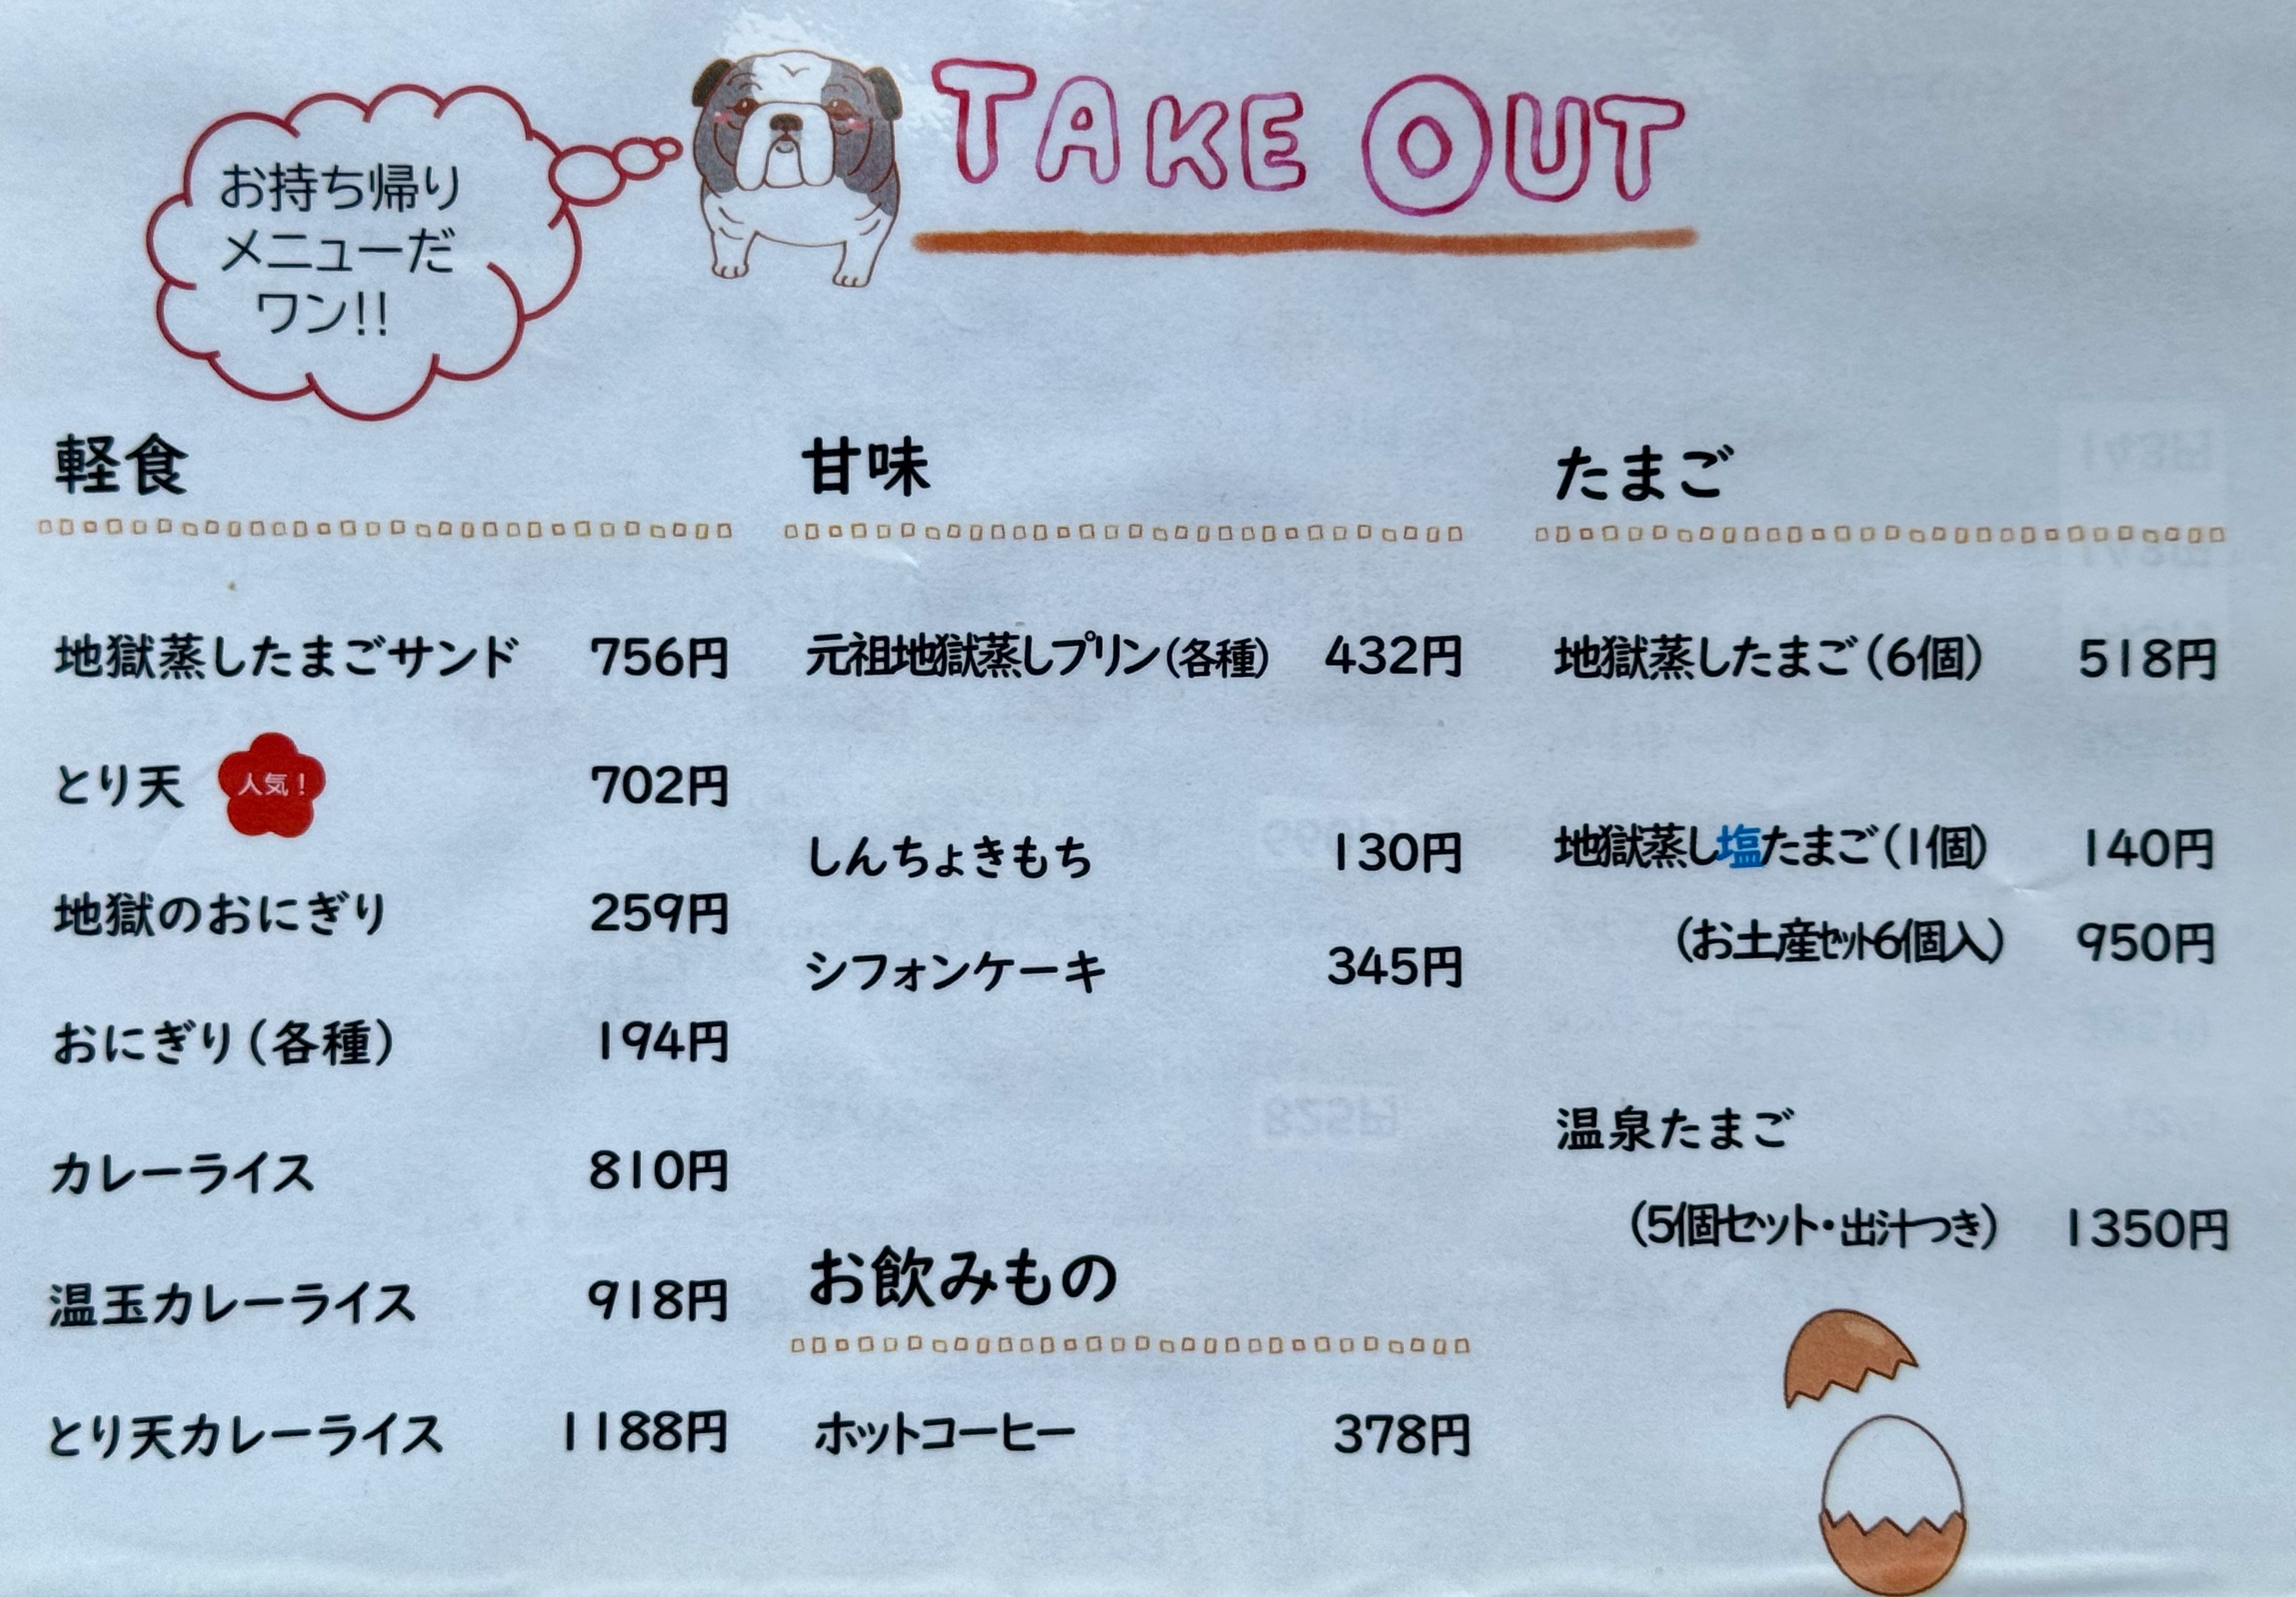 お持ち帰り
メニューだ
ワン!!
TAKE OUT
軽食
地獄蒸したまごサンド 756円
とり天 人気! 702円
地獄のおにぎり 259円
おにぎり(各種) 194円
カレーライス 810円
温玉カレーライス 918円
とり天カレーライス 1188円
甘味
元祖地獄蒸しプリン(各種) 432円
しんちょきもち 130円
シフォンケーキ 345円
お飲みもの
ホットコーヒー 378円
たまご
地獄蒸したまご(6個) 518円
地獄蒸し塩たまご(1個) 140円
(お土産セット6個入) 950円
温泉たまご
(5個セット・出汁つき) 1350円